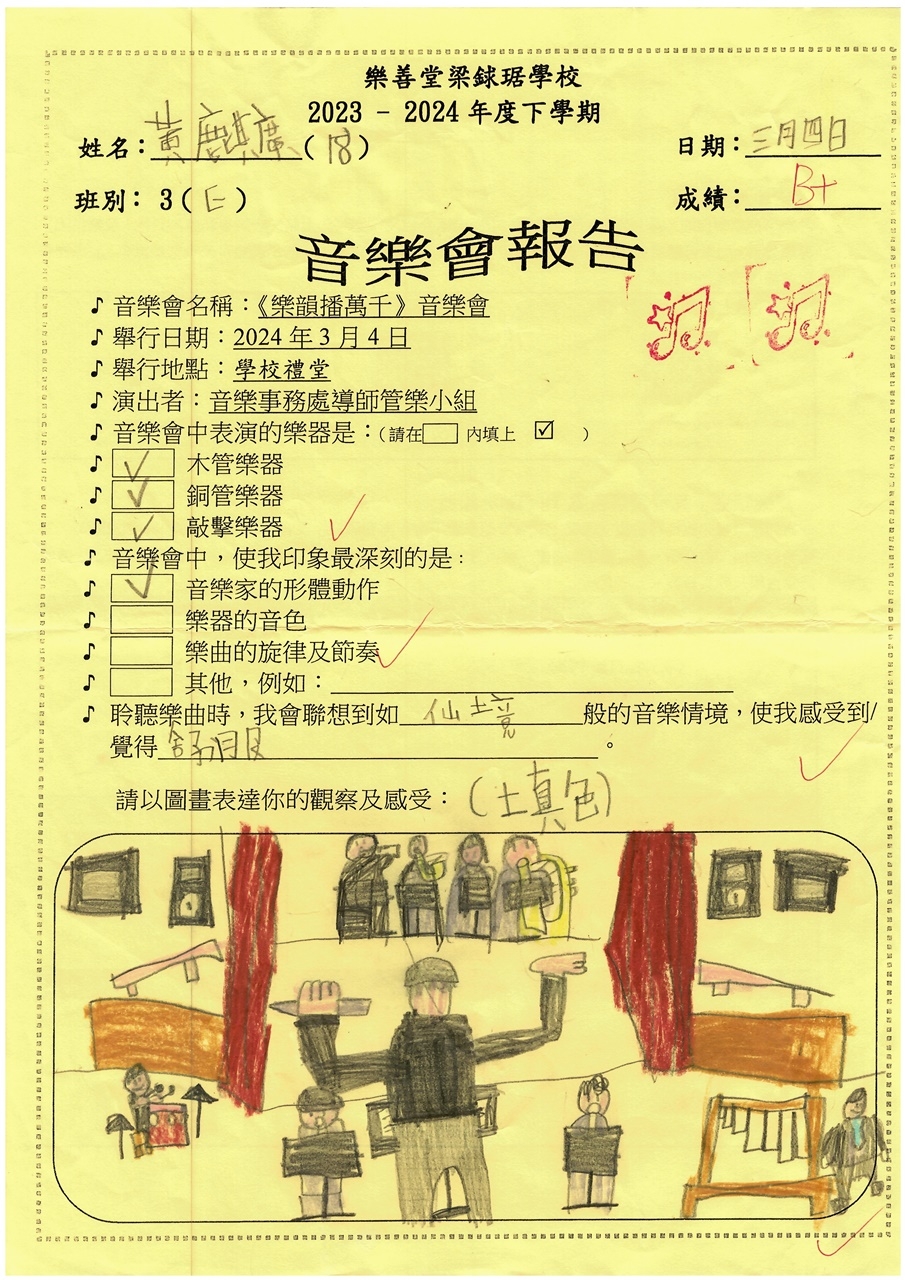 樂善堂梁銶琚學校
2023 - 2024 年度下學期
姓名：黃麒廣(18) 日期：三月四日
班別：3(E) 成績：B+
音樂會報告
♪ 音樂會名稱：《樂韻播萬千》音樂會
♪ 舉行日期：2024 年 3 月 4 日
♪ 舉行地點：學校禮堂
♪ 演出者：音樂事務處導師管樂小組
♪ 音樂會中表演的樂器是：(請在□內填上 ☑ )
♪ ✓ 木管樂器
♪ ✓ 銅管樂器
♪ ✓ 敲擊樂器
♪ 音樂會中，使我印象最深刻的是：
♪ ✓ 音樂家的形體動作
♪ □ 樂器的音色
♪ □ 樂曲的旋律及節奏
♪ □ 其他，例如：
♪ 聆聽樂曲時，我會聯想到如仙境般的音樂情境，使我感受到/
覺得舒服。
請以圖畫表達你的觀察及感受：(填色)